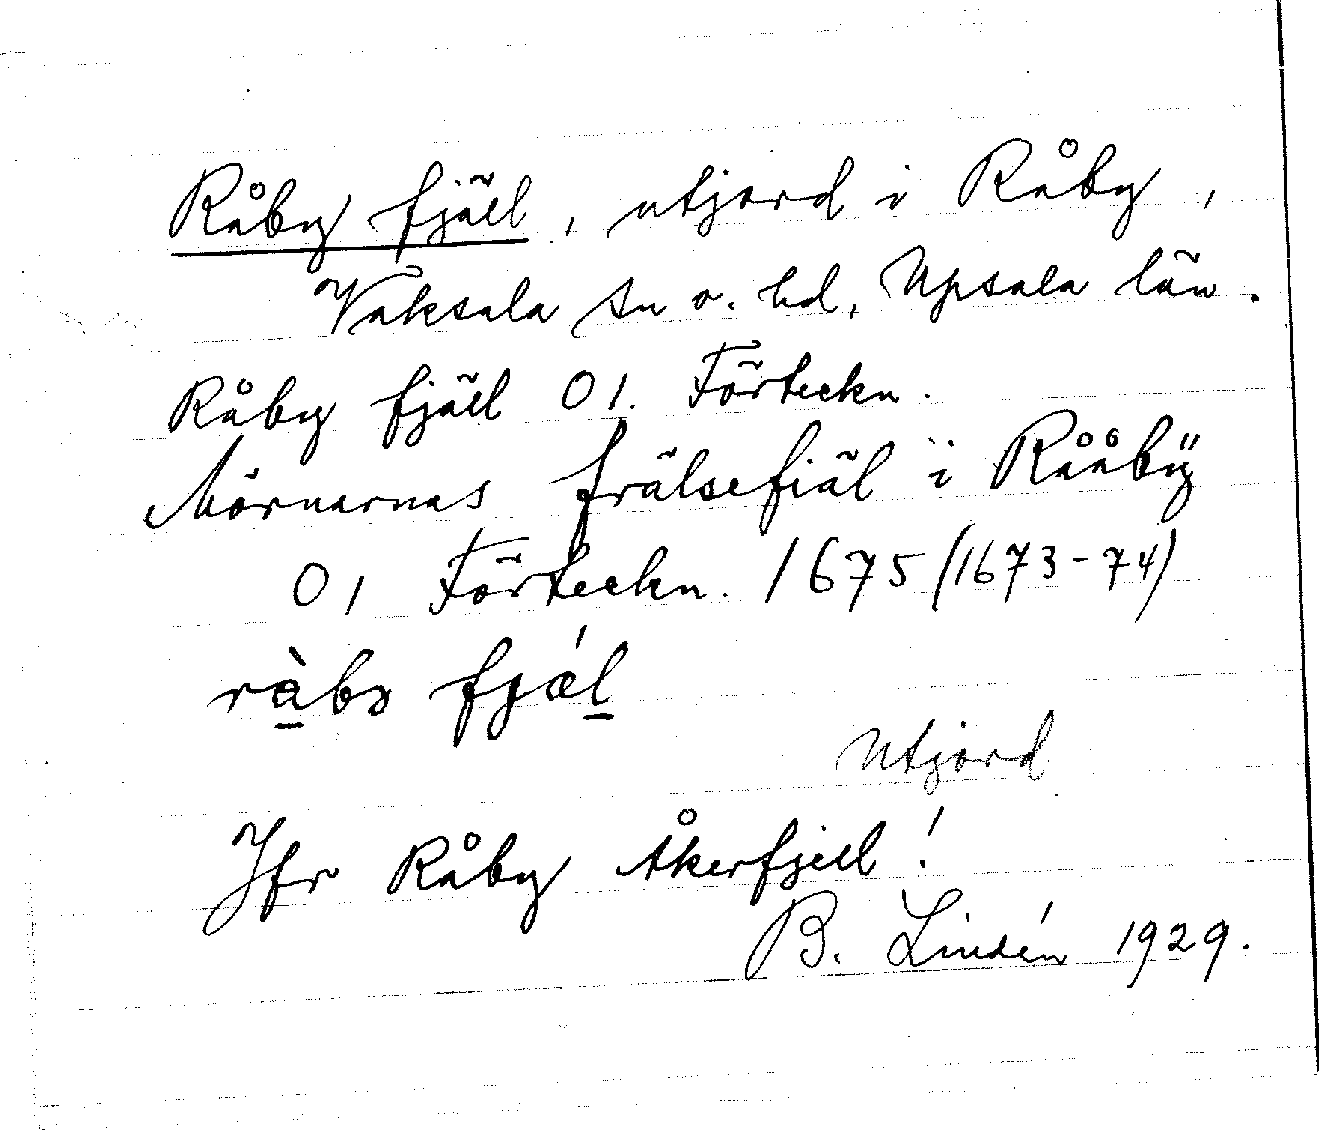 Råby fjäll, utjord i Råby,
Vaksala sn o. hd, Upsala län.
Råby fjäll 01. Förteckn.
Mörnarnas frälsefiäl i Rååbÿ
01 Förteckn. 1675 (1673-74)
rå̀bə fjǽl
Utjord
Jfr Råby Åkerfjell!
B. Lindén 1929.